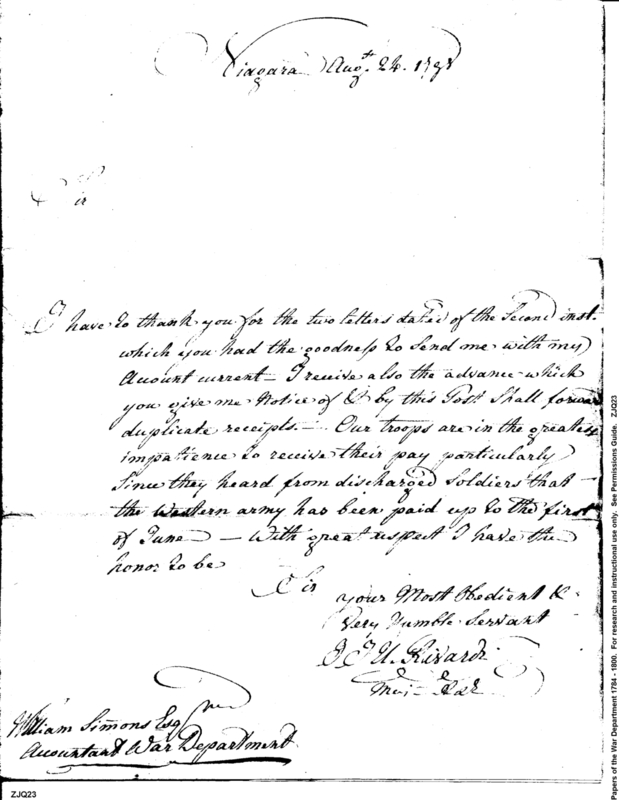 Niagara Augt. 24. 1798
Sir
I have to thank you for the two letters dated of the Second inst.
which you had the goodness to send me with my
Acount current — I receive also the advance which
you give me Notice of & by this Post Shall forward
duplicate receipts. — Our troops are in the greatest
impatience to receive their pay particularly
Since they heard from discharged Soldiers that
the Western army has been paid up to the first
of June — With great respect I have the
honor to be
Sir
your Most Obedient &
Very Humble Servant
J J U. Rivardi
Maj
William Simons Esqr
Accountant War Department
ZJQ23
Papers of the War Department 1784 - 1800. For research and instructional use only. See Permissions Guide. ZJQ23